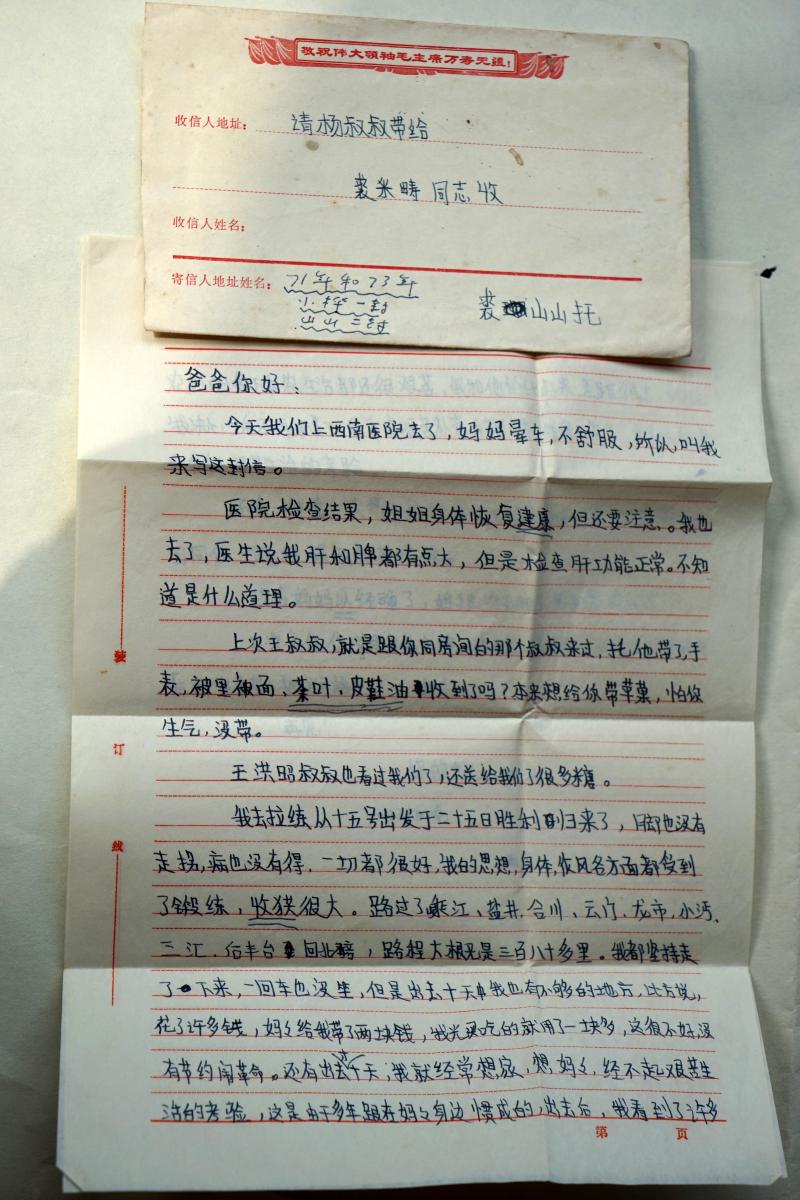 敬祝伟大领袖毛主席万寿无疆!
收信人地址: 请杨叔叔带给
裘米畴 同志收
收信人姓名:
寄信人地址姓名: 71年和73年
小桦一封
山山三封
裘山山托
爸爸你好:
今天我们上西南医院去了,妈妈晕车,不舒服,所以,叫我
来写这封信。
医院检查结果,姐姐身体恢复建康,但还要注意。我也
去了,医生说我肝和脾都有点大,但是检查肝功能正常。不知
道是什么道理。
上次王叔叔,就是跟你同房间的那个叔叔来过,托他带了手
表,被里被面、茶叶、皮鞋油收到了吗?本来想给你带苹菓,怕你
生气,没带。
王洪昭叔叔也看过我们了,还送给我们了很多糖。
我去拉练从十五号出发于二十五日胜利归来了,脚也没有
走拐,病也没有得,一切都很好,我的思想,身体,作风各方面都受到
了锻练,收获很大。路过了 江、盐井、合川、云门、龙市、小沔、
三汇、后丰台回北碚,路程大概是三百八十多里。我都坚持走
了下来,一回车也没坐,但是出去十天中我也有不够的地方,比方说,
花了许多钱,妈々给我带了两块钱,我光买吃的就用了一块多,这很不好,没
有节约闹革命。还有出去十天,我就经常想家,想妈々,经不起艰苦生
活的考验,这是由于多年跟在妈々身边惯成的,出去后,我看到了许多
第 页
装
订
线